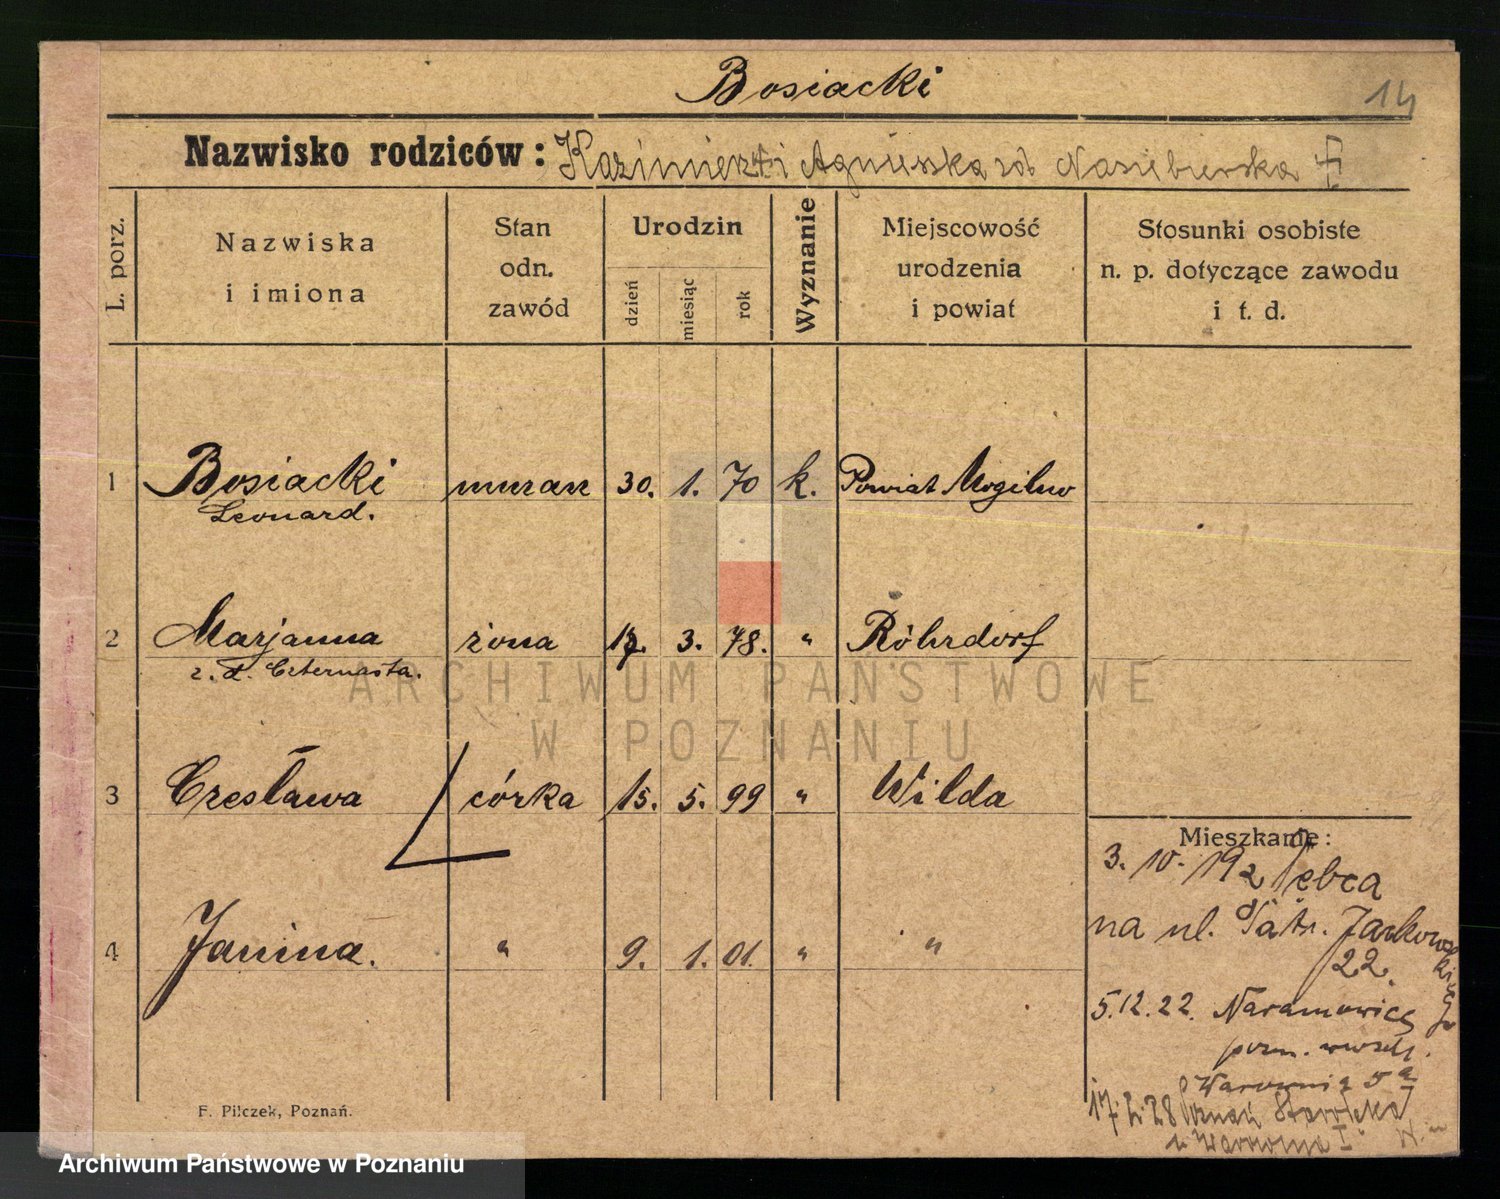 Bosiacki
14
Nazwisko rodziców: Kazimierz † i Agnieszka zd Nasieberska †
L. porz.
Nazwiska
i imiona
Stan
odn.
zawód
Urodzin
dzień
miesiąc
rok
Wyznanie
Miejscowość
urodzenia
i powiat
Stosunki osobiste
n. p. dotyczące zawodu
i t. d.
1 Bosiacki murarz 30. 1. 70 k. Powiat Mogilno
Leonard.
2 Marjanna żona 17. 3. 78. " Röhrdorf
z. d. Czternasta.
ARCHIWUM PAŃSTWOWE
W POZNANIU
3 Czesława córka 15. 5. 99 " Wilda
Mieszkanie:
3. 10. 192
na ul. Jarkowskiego
22.
4 Janina. " 9. 1. 01. " "
5.12.22. Naramowice
Warownia 5a
17.2.28 Poznań Starołęka
Warownia I
F. Pilczek, Poznań.
Archiwum Państwowe w Poznaniu